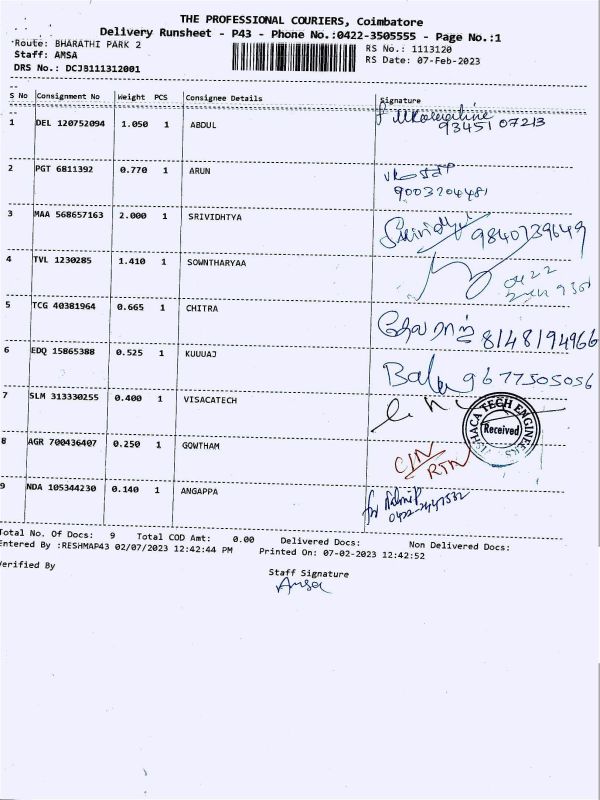 THE PROFESSIONAL COURIERS, Coimbatore
Delivery Runsheet - P43 - Phone No.:0422-3505555 - Page No.:1
Route: BHARATHI PARK 2
RS No.: 1113120
Staff: AMSA
RS Date: 07-Feb-2023
DRS No.: DCJB111312001
S No Consignment No Weight PCS Consignee Details Signature
1 DEL 120752094 1.050 1 ABDUL
93451 07213
2 PGT 6811392 0.770 1 ARUN
9003204481
3 MAA 568657163 2.000 1 SRIVIDHTYA
Srividhya 9840739649
4 TVL 1230285 1.410 1 SOWNTHARYAA
0422
5 TCG 40381964 0.665 1 CHITRA
8148194966
6 EDQ 15865388 0.525 1 KUUUAJ
Bala 9677505056
7 SLM 313330255 0.400 1 VISACATECH
TECH ENGINEERS
Received
8 AGR 700436407 0.250 1 GOWTHAM
C/N
RTN
9 NDA 105344230 0.140 1 ANGAPPA
for
Total No. Of Docs: 9 Total COD Amt: 0.00 Delivered Docs: Non Delivered Docs:
Entered By :RESHMAP43 02/07/2023 12:42:44 PM Printed On: 07-02-2023 12:42:52
Verified By
Staff Signature
Amsa